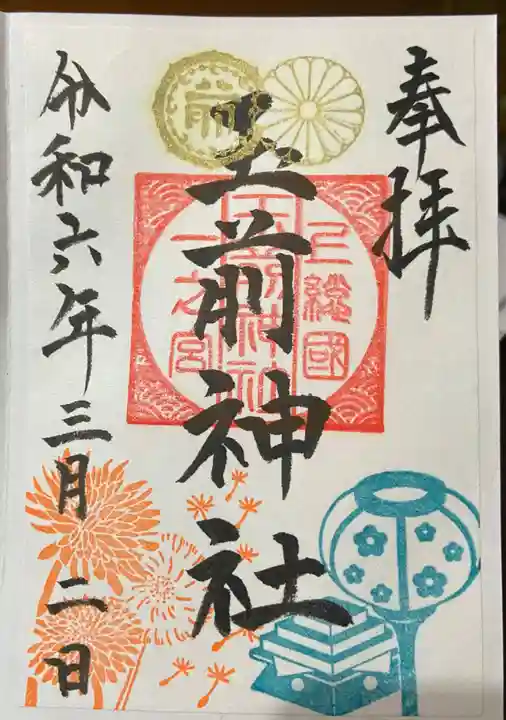 奉拝
玉前神社
上総國
玉前神社
一之宮
令和六年三月二日